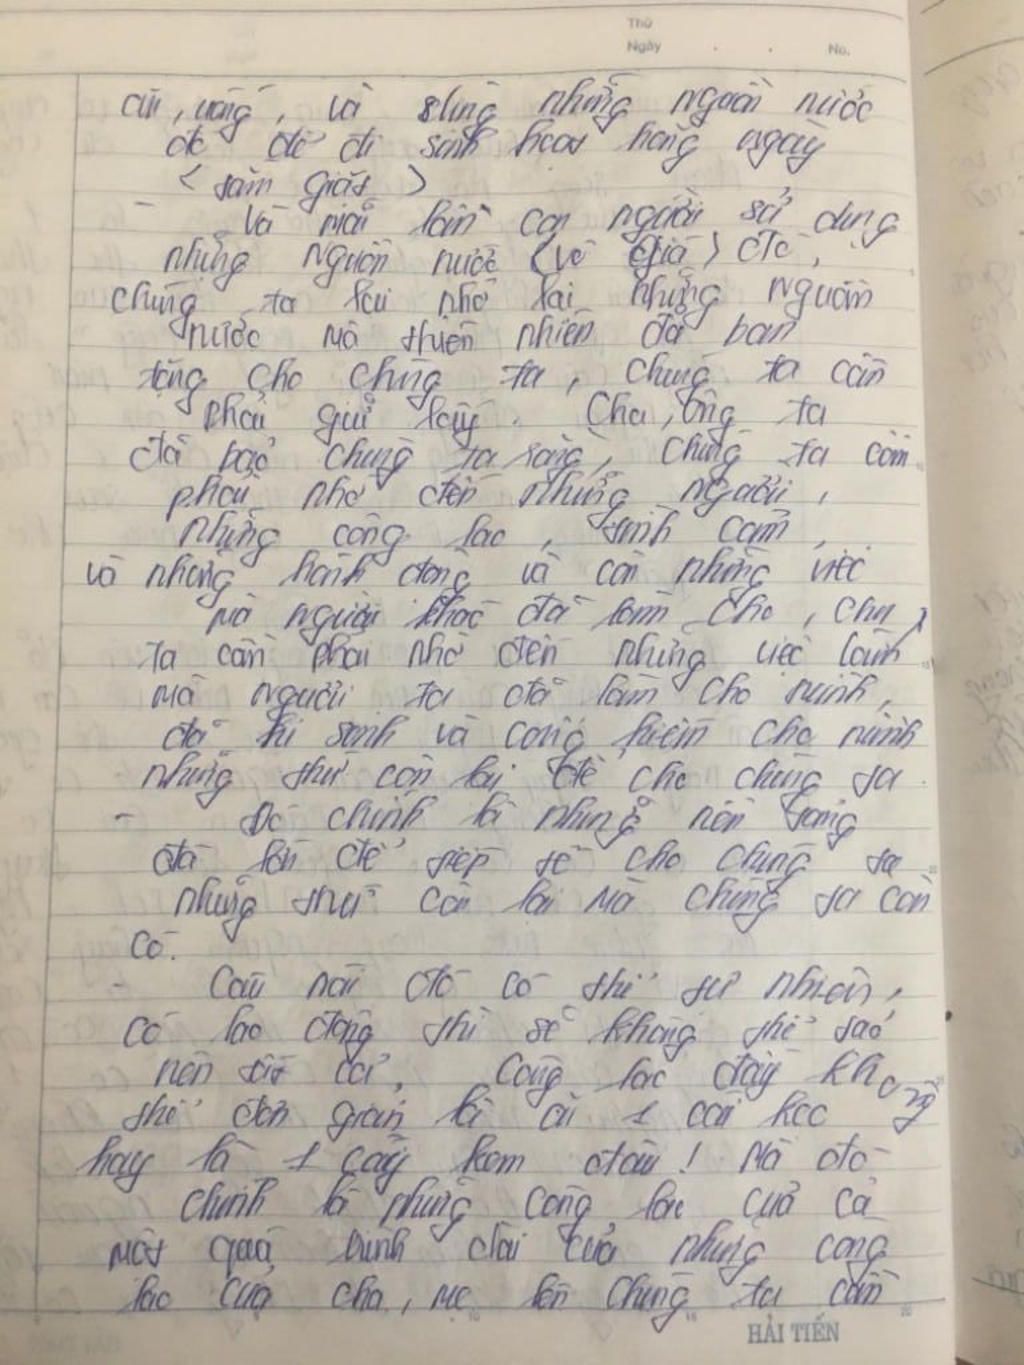 Thứ
Ngày . . No.
ăn, uống, và dùng những nguồn nước
đó để đi sinh hoạt hằng ngày
(tắm giặt)
- Và mỗi lần con người sử dụng
những nguồn nước (vô giá) đó,
chúng ta lại nhớ lại những nguồn
nước mà thiên nhiên đã ban
tặng cho chúng ta, chúng ta cần
phải giữ lấy. Cha, ông ta
đã bảo chúng ta rằng, chúng ta cần
phải nhớ đến những người,
những công lao, tình cảm,
và những hành động và còn những việc
mà người khác đã làm cho, chu
ta cần phải nhớ đến những việc làm
mà người ta đã làm cho mình,
đã hi sinh và cống hiến cho mình
những thứ còn lại để cho chúng ta.
- Đó chính là những nền tảng
đã lớn để tiếp tế cho chúng ta
những thứ còn lại mà chúng ta còn
có.
- Câu nói đó có thể tự nhiên,
có lao động thì sẽ không thể
nên cả. Công lao đây không
thể đơn giản là ăn 1 cái kẹo
hay là 1 cây kem đâu! Mà đó
chính là những công lao của cả
một quá trình dài của những công
lao của cha, mẹ lên chúng ta cần
HẢI TIẾN